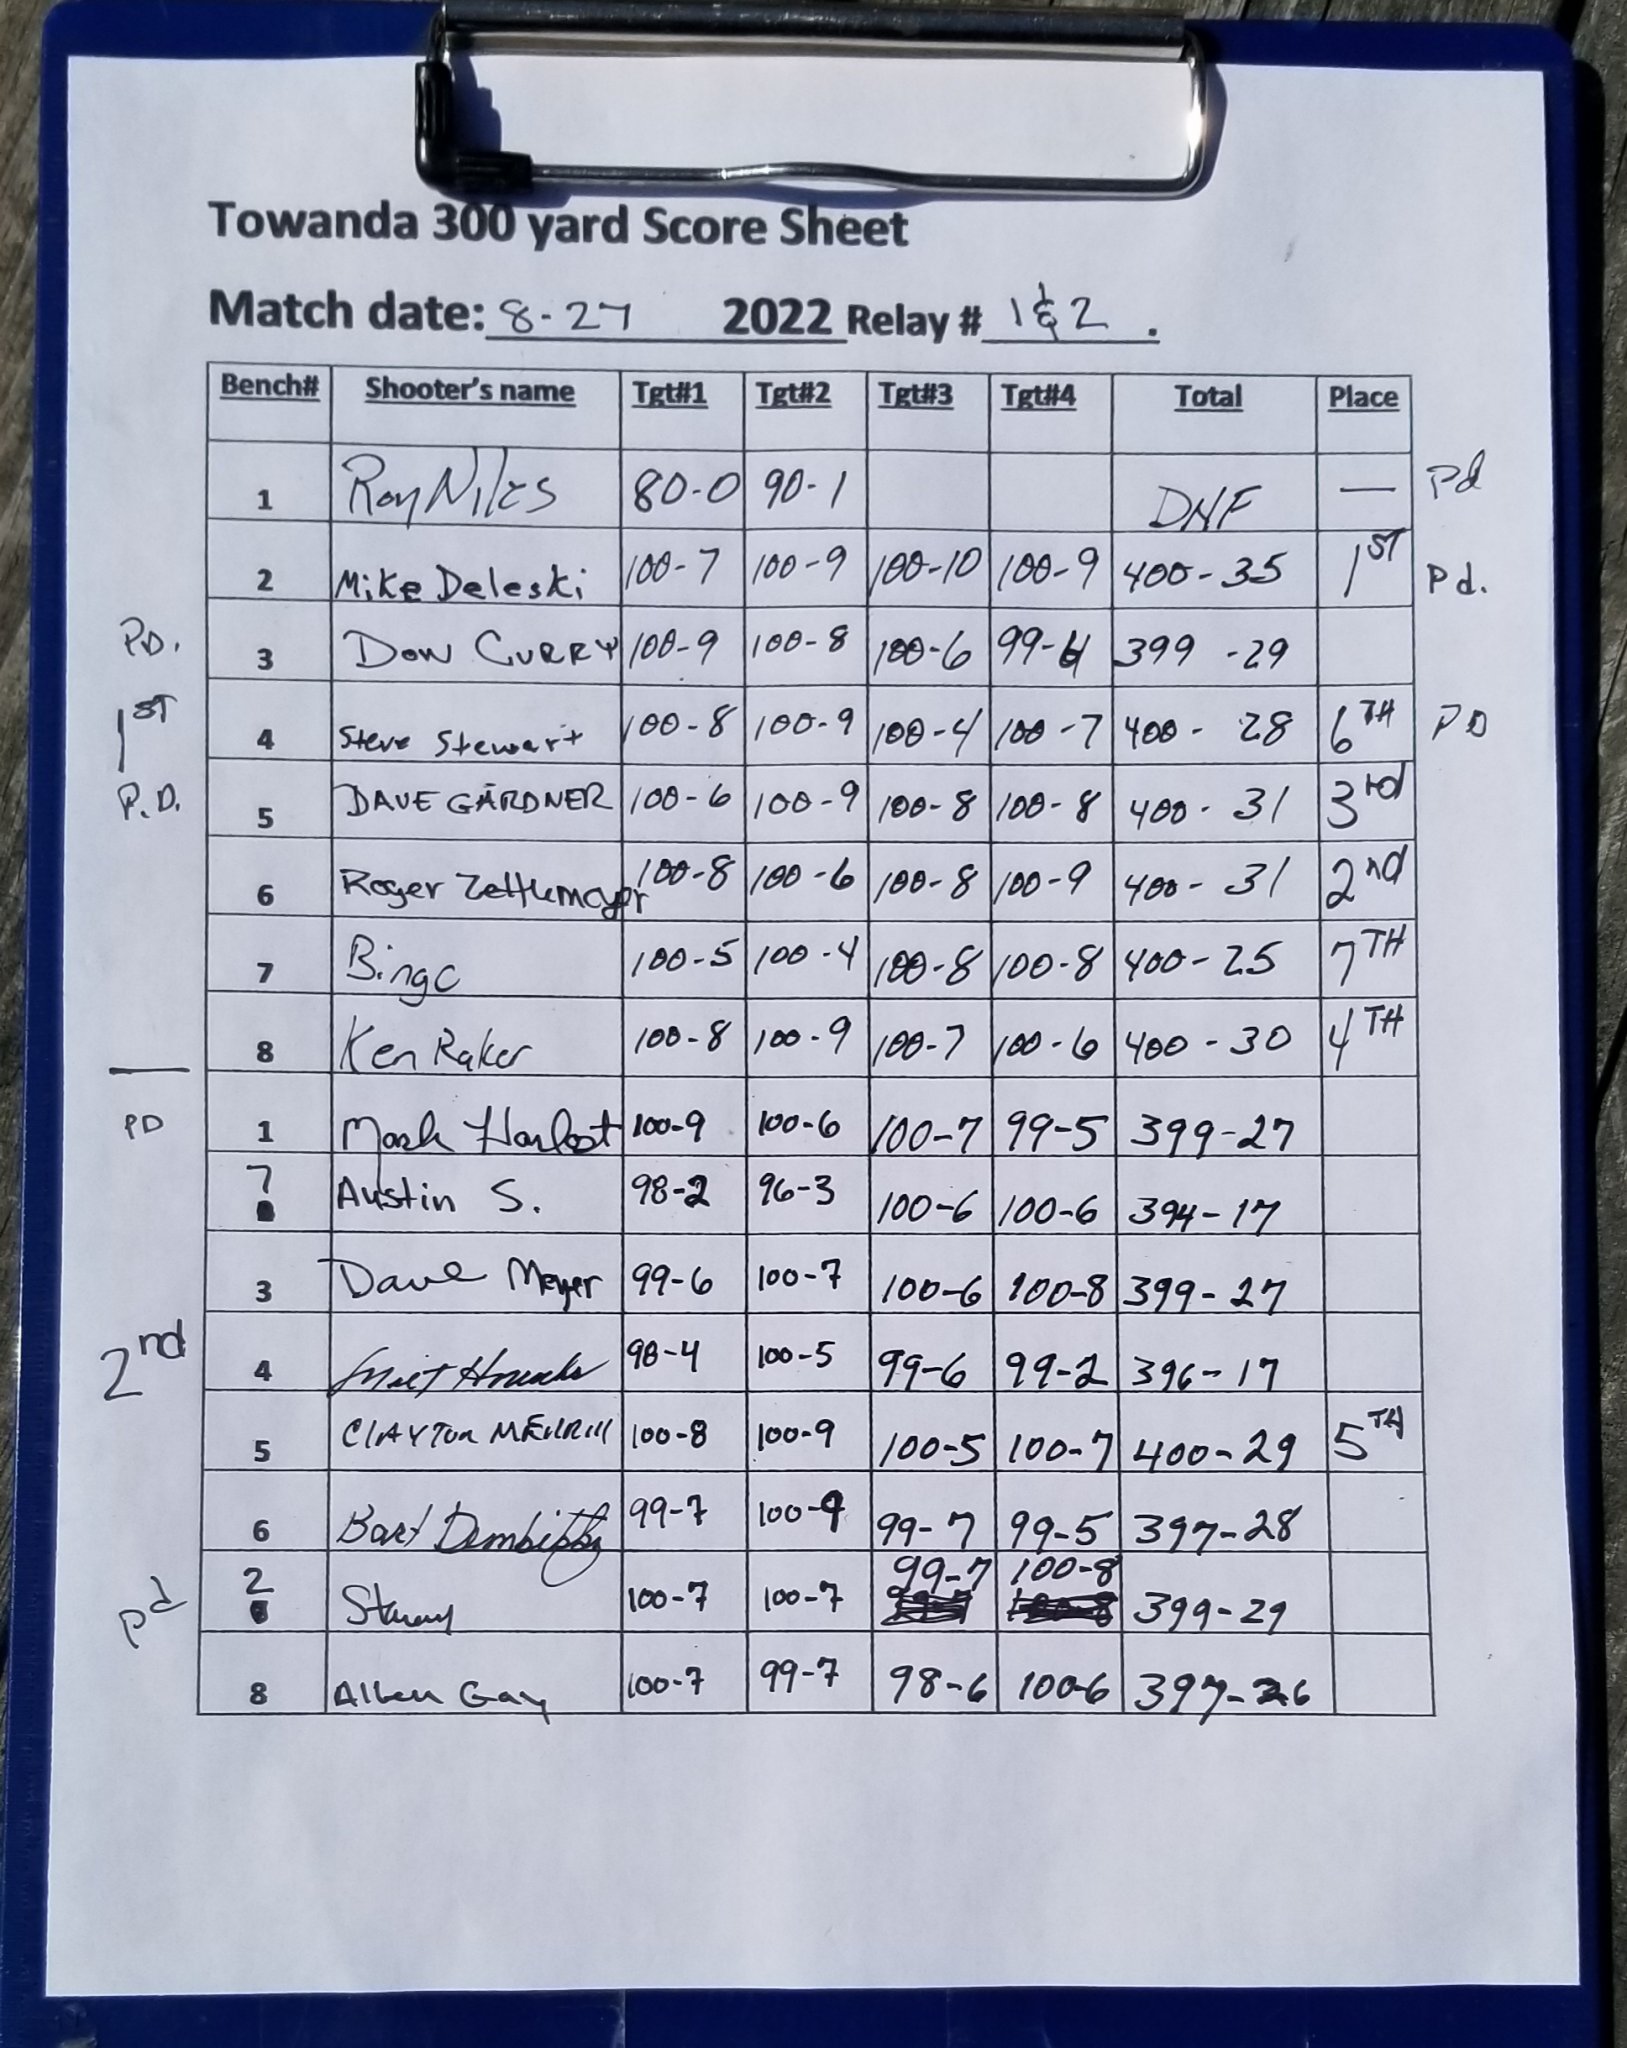 Towanda 300 yard Score Sheet
Match date: 8-27 2022 Relay # 1&2 .
Bench# Shooter's name Tgt#1 Tgt#2 Tgt#3 Tgt#4 Total Place
1 Roy Niles 80-0 90-1 DNF — Pd
2 Mike Deleski 100-7 100-9 100-10 100-9 400-35 1ST Pd.
PD. 3 Don Curry 100-9 100-8 100-6 99-6 399-29
1ST 4 Steve Stewart 100-8 100-9 100-4 100-7 400-28 6TH PD
P.D. 5 DAVE GARDNER 100-6 100-9 100-8 100-8 400-31 3rd
6 Roger 100-8 100-6 100-8 100-9 400-31 2nd
7 Bingo 100-5 100-4 100-8 100-8 400-25 7TH
8 Ken Raker 100-8 100-9 100-7 100-6 400-30 4TH
PD 1 Mark 100-9 100-6 100-7 99-5 399-27
7 Austin S. 98-2 96-3 100-6 100-6 394-17
3 Dave Meyer 99-6 100-7 100-6 100-8 399-27
2nd 4 98-4 100-5 99-6 99-2 396-17
5 CLAYTON MERRILL 100-8 100-9 100-5 100-7 400-29 5TH
6 Bart 99-7 100-9 99-7 99-5 397-28
pd 2 100-7 100-7 99-7 100-8 399-29
8 Allen Gay 100-7 99-7 98-6 100-6 397-26